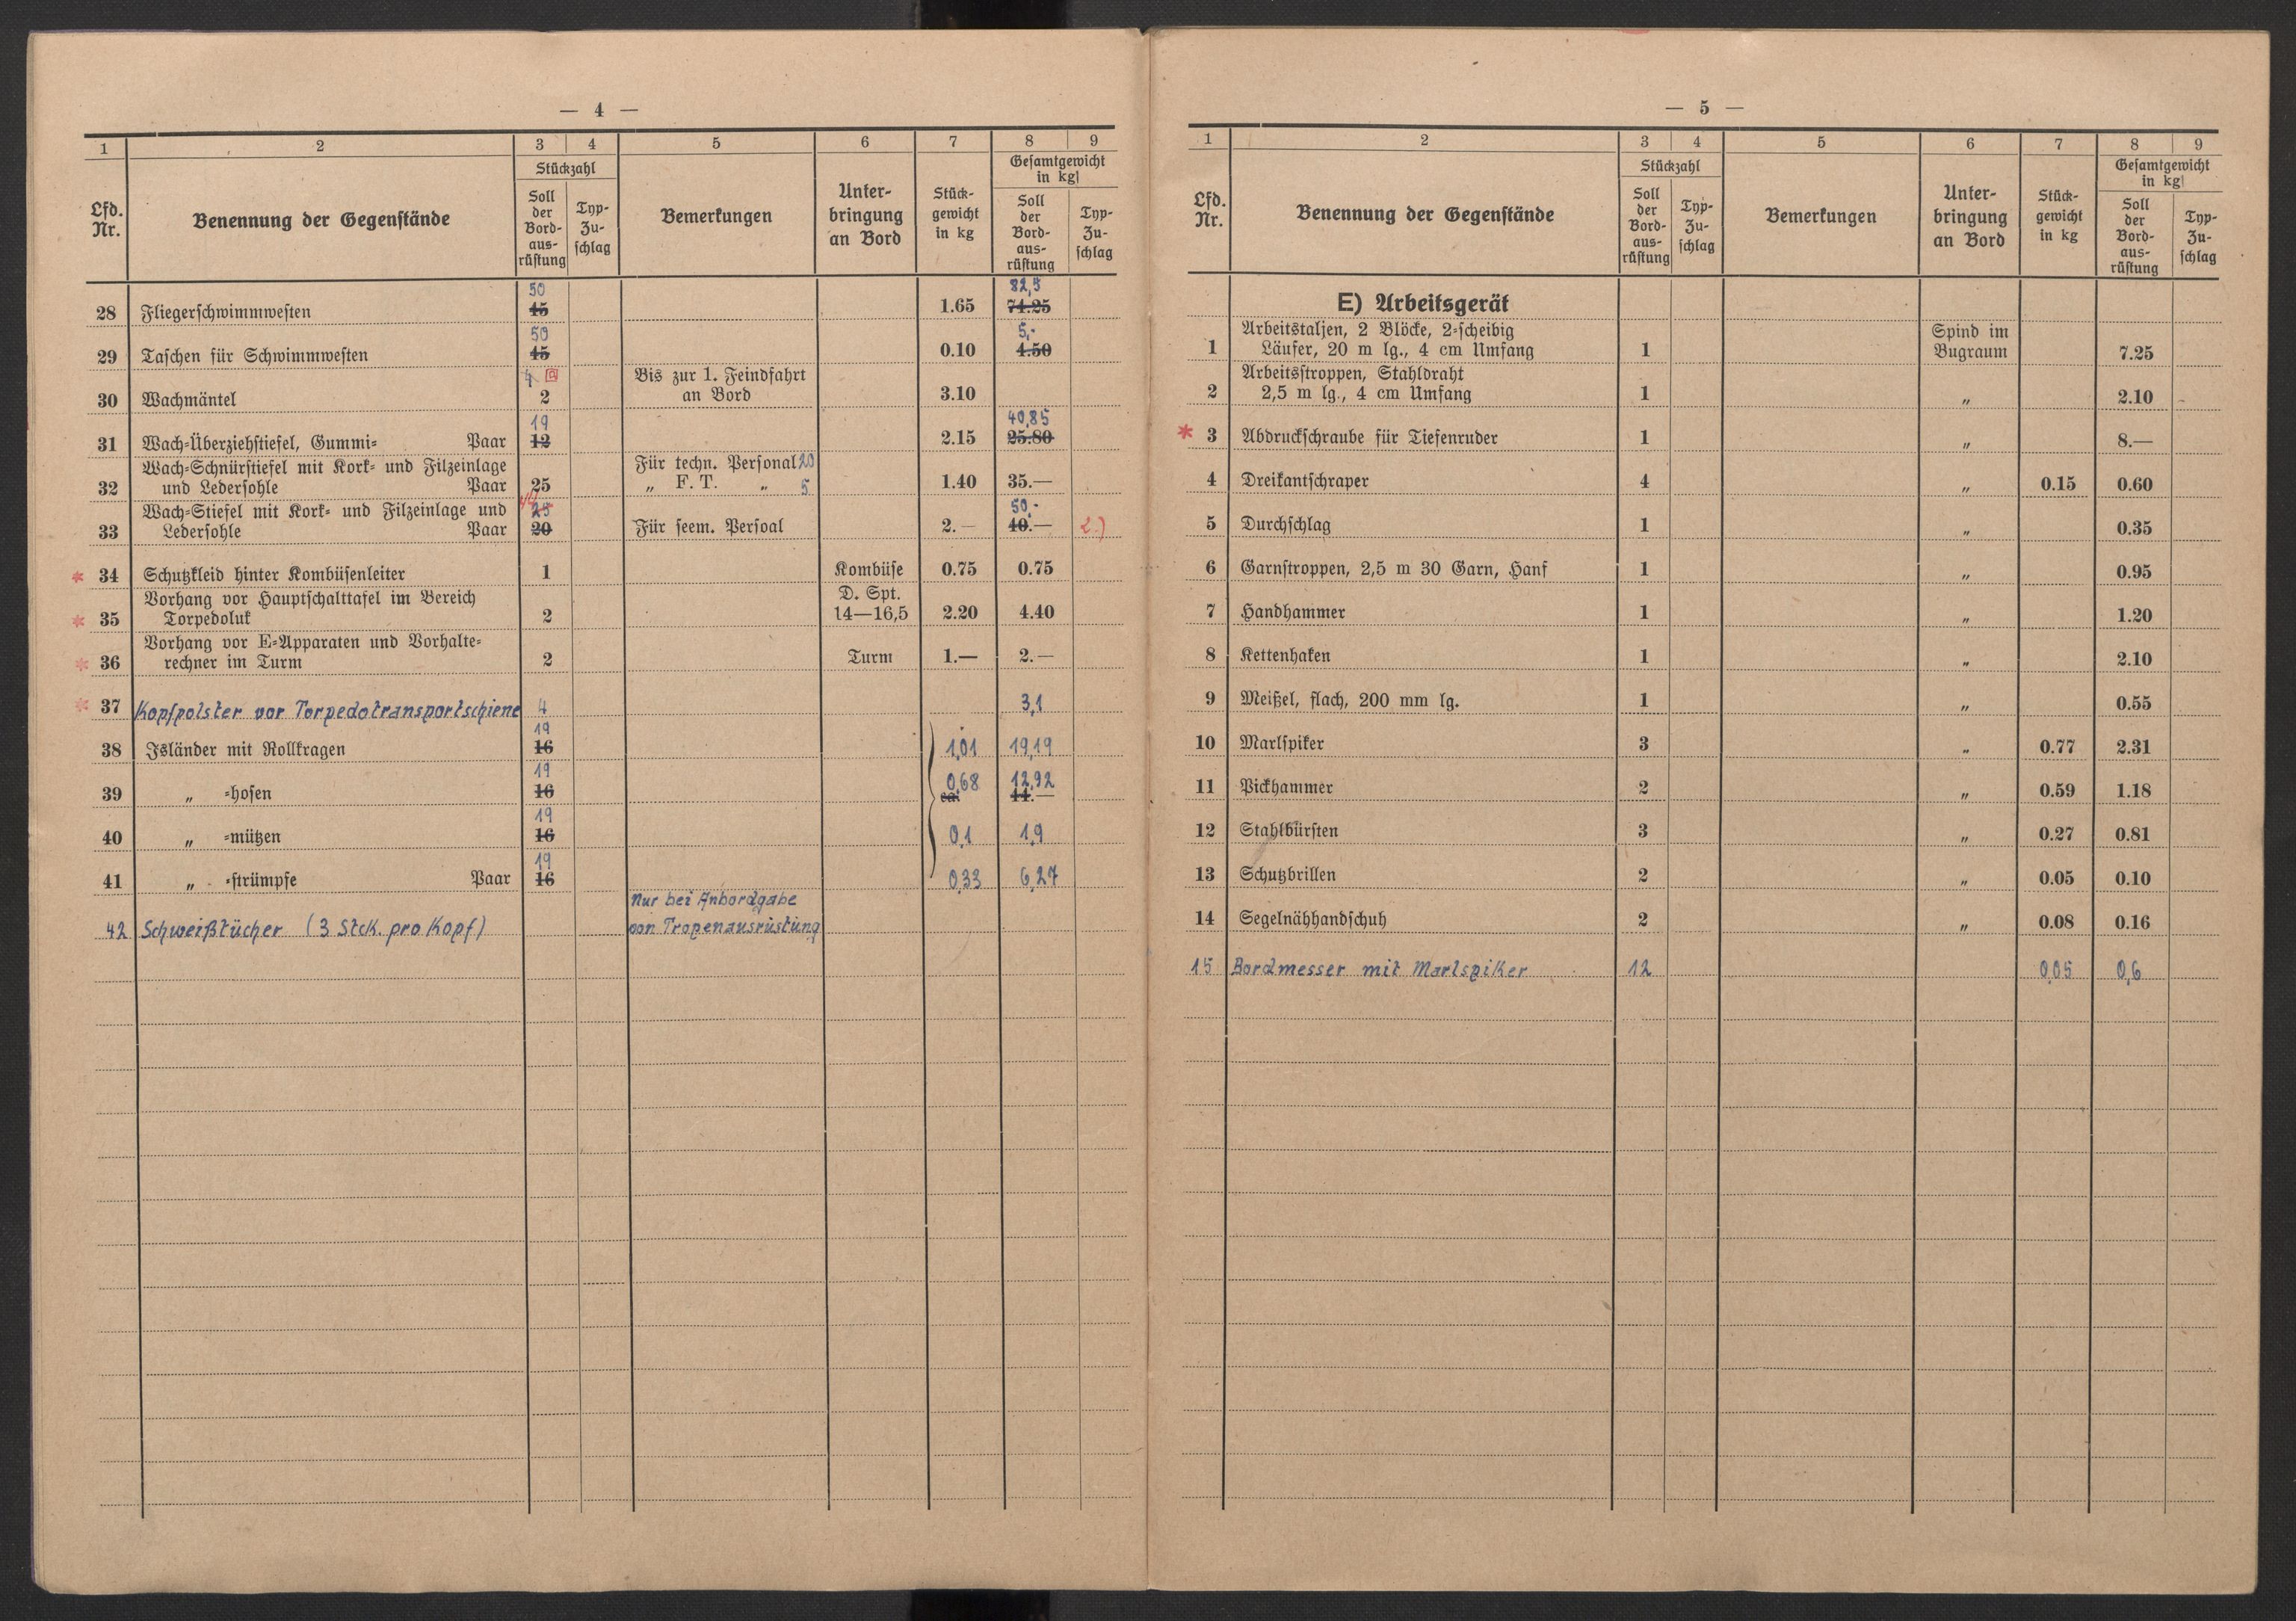 — 4 —
1 2 3 4 5 6 7 8 9
Lfd. Nr. Benennung der Gegenstände Stückzahl Bemerkungen Unter- bringung an Bord Stück- gewicht in kg Gesamtgewicht in kg
Soll der Bord- aus- rüstung Typ- Zu- schlag Soll der Bord- aus- rüstung Typ- Zu- schlag
50 82,5
28 Fliegerschwimmwesten 45 1.65 74.25
50 5,-
29 Taschen für Schwimmwesten 45 0.10 4.50
4 Bis zur 1. Feindfahrt
30 Wachmäntel 2 an Bord 3.10
19 40,85
31 Wach-Überziehstiefel, Gummi- Paar 12 2.15 25.80
Wach-Schnürstiefel mit Kork- und Filzeinlage Für techn. Personal 20
32 und Ledersohle Paar 25 „ F. T. „ 5 1.40 35.—
Wach-Stiefel mit Kork- und Filzeinlage und 25 50,-
33 Ledersohle Paar 20 Für seem. Persoal 2.— 40.— 2.)
* 34 Schutzkleid hinter Kombüsenleiter 1 Kombüse 0.75 0.75
Vorhang vor Hauptschalttafel im Bereich D. Spt.
* 35 Torpedoluk 2 14—16,5 2.20 4.40
Vorhang vor E-Apparaten und Vorhalte-
* 36 rechner im Turm 2 Turm 1.— 2.—
* 37 Kopfpolster vor Torpedotransportschiene 4 3,1
19
38 Isländer mit Rollkragen 16 1,01 19,19
19 0,68 12,92
39 „ -hosen 16 ca. 14.—
19
40 „ -mützen 16 0,1 1,9
19
41 „ -strümpfe Paar 16 0,33 6,27
Nur bei Anbordgabe
42 Schweißtücher (3 Stck. pro Kopf) von Tropenausrüstung
— 5 —
1 2 3 4 5 6 7 8 9
Lfd. Nr. Benennung der Gegenstände Stückzahl Bemerkungen Unter- bringung an Bord Stück- gewicht in kg Gesamtgewicht in kg
Soll der Bord- aus- rüstung Typ- Zu- schlag Soll der Bord- aus- rüstung Typ- Zu- schlag
E) Arbeitsgerät
Arbeitstaljen, 2 Blöcke, 2-scheibig Spind im
1 Läufer, 20 m lg., 4 cm Umfang 1 Bugraum 7.25
Arbeitsstroppen, Stahldraht
2 2,5 m lg., 4 cm Umfang 1 „ 2.10
* 3 Abdruckschraube für Tiefenruder 1 „ 8.—
4 Dreikantschraper 4 „ 0.15 0.60
5 Durchschlag 1 „ 0.35
6 Garnstroppen, 2,5 m 30 Garn, Hanf 1 „ 0.95
7 Handhammer 1 „ 1.20
8 Kettenhaken 1 „ 2.10
9 Meißel, flach, 200 mm lg. 1 „ 0.55
10 Marlspiker 3 „ 0.77 2.31
11 Pickhammer 2 „ 0.59 1.18
12 Stahlbürsten 3 „ 0.27 0.81
13 Schutzbrillen 2 „ 0.05 0.10
14 Segelnähhandschuh 2 „ 0.08 0.16
15 Bordmesser mit Marlspiker 12 0,05 0,6